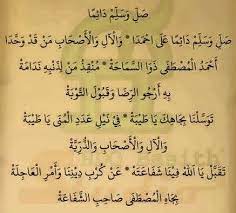 صَلِّ وَسَلِّمْ دَائِمًا
صَلِّ وَسَلِّمْ دَائِمًا عَلَى احْمَدَا * وَالْآلِ وَالْأَصْحَابِ مَنْ قَدْ وَحَّدَا
أَحْمَدُ الْمُصْطَفَى ذَوَا السَّمَاحَةْ * مُنْقِذُ مَنْ لِذَنْبِهِ نَدَامَةْ
بِهِ أَرْجُو الرِّضَا وَقَبُولَ التَّوْبَةْ
تَوَسَّلْنَا بِجَاهِكَ يَا طَيْبَةْ * فِي نَيْلِ عَدَدِ الْمُنَى يَا طَيْبَةْ
وَالْآلِ وَالْأَصْحَابِ وَالذُّرِّيَّةْ
تَقَبَّلْ يَا اللهُ فِينَا شَفَاعَتَهْ * عَنْ كُرَبِ دِينِنَا وَأَمْرِ الْعَاجِلَةْ
بِجَاهِ الْمُصْطَفَى صَاحِبِ الشَّفَاعَةْ